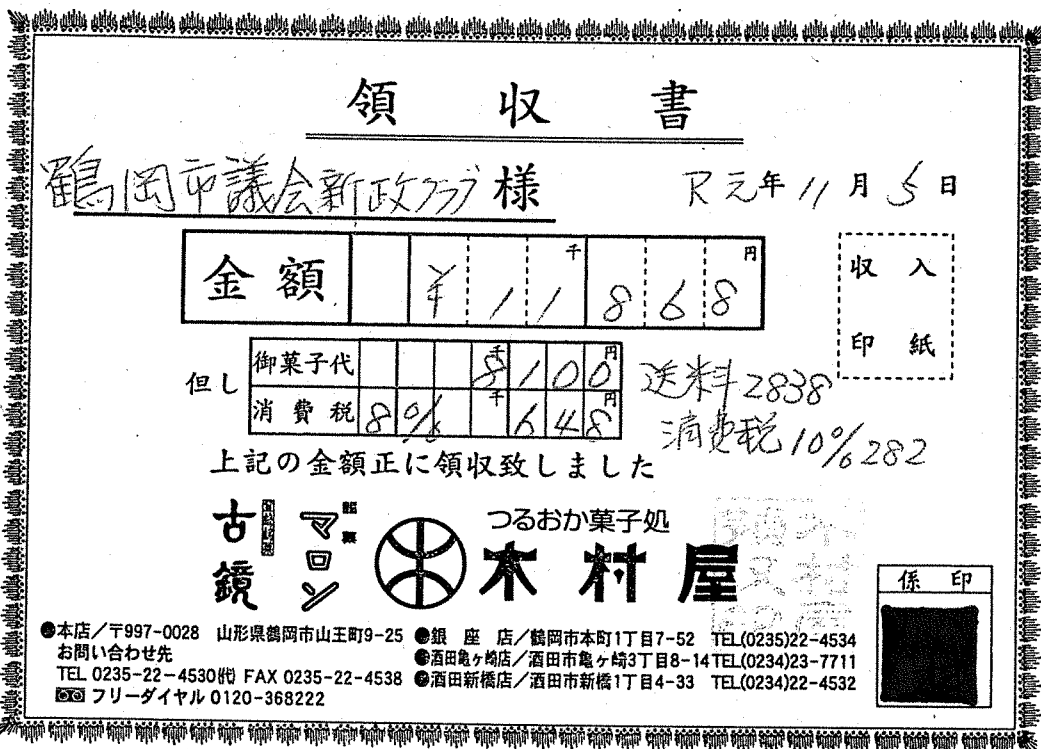 領収書
鶴岡市議会新政クラブ 様 R元年11月5日
金額 ¥11868 千 円
収入印紙
但し 御菓子代 8100 千 円
送料2838
消費税 8% 648 千 円
消費税10% 282
上記の金額正に領収致しました
古鏡 マロン つるおか菓子処
木村屋
係印
●本店/〒997-0028 山形県鶴岡市山王町9-25
お問い合わせ先
TEL 0235-22-4530㈹ FAX 0235-22-4538
フリーダイヤル 0120-368222
●銀座店/鶴岡市本町1丁目7-52 TEL(0235)22-4534
●酒田亀ヶ崎店/酒田市亀ヶ崎3丁目8-14 TEL(0234)23-7711
●酒田新橋店/酒田市新橋1丁目4-33 TEL(0234)22-4532